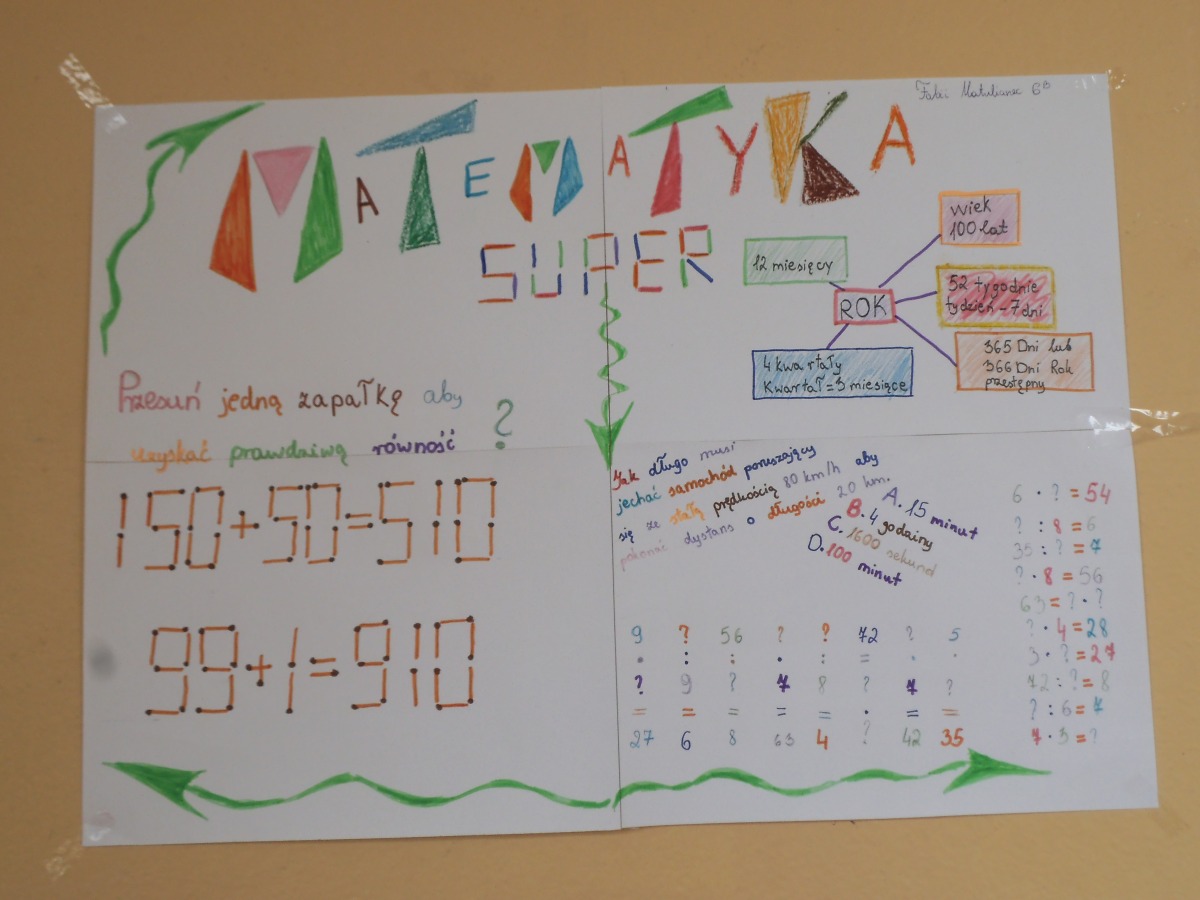 6B
MATEMATYKA
SUPER
wiek
100 lat
12 miesięcy
52 tygodnie
tydzień - 7 dni
ROK
365 Dni lub
366 Dni Rok
przestępny
4 kwartały
Kwartał = 3 miesiące
Przesuń jedną zapałkę aby
uzyskać prawdziwą równość ?
150+50=510
99+1=910
Jak długo musi
jechać samochód poruszający
się ze stałą prędkością 80 km/h aby
pokonać dystans o długości 20 km.
A. 15 minut
B. 4 godziny
C. 1600 sekund
D. 100 minut
6 · ? = 54
? : 8 = 6
35 : ? = 7
? · 8 = 56
63 = ? · ?
? · 4 = 28
3 · ? = 27
72 : ? = 8
? : 6 = 7
7 · 3 = ?
9 ? 56 ? ? 72 ? 5
· : : · : = · ·
? 9 ? 7 8 ? 7 ?
= = = = = · = =
27 6 8 63 4 ? 42 35